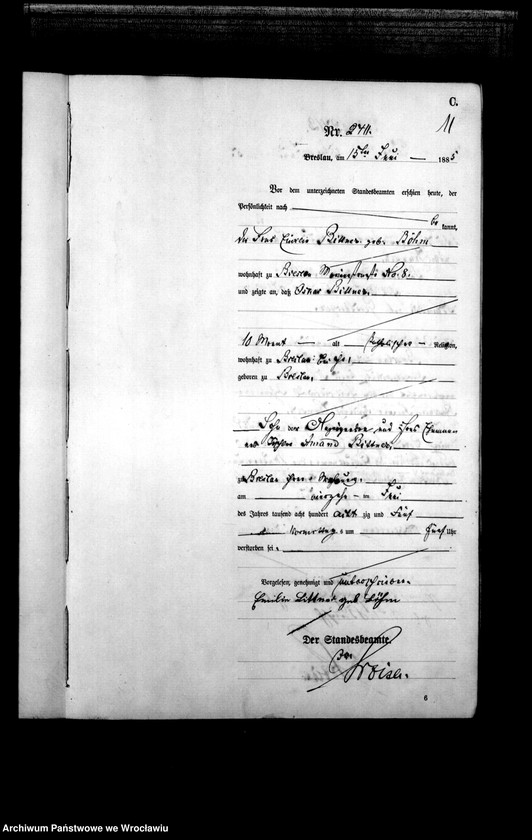 C.
11
Nr. 2711.
Breslau, am 15ten Juni 1885
Vor dem unterzeichneten Standesbeamten erschien heute, der
Persönlichkeit nach
be kannt,
die Frau Emilie Bittner geb. Böhm
wohnhaft zu Breslau No. 8.
und zeigte an, daß Bittner,
10 Monat alt katholischer Religion,
wohnhaft zu Breslau bei ihr,
geboren zu Breslau,
Sohn der Anzeigenden und ihres Ehemannes
Amand Bittner,
zu Breslau in ihrer Wohnung,
am vierzehnten Juni
des Jahres tausend acht hundert acht zig und fünf
Vormittags um fünf Uhr
verstorben sei.
Vorgelesen, genehmigt und unterschrieben
Emilie Bittner geb Böhm
Der Standesbeamte.
6
Archiwum Państwowe we Wrocławiu